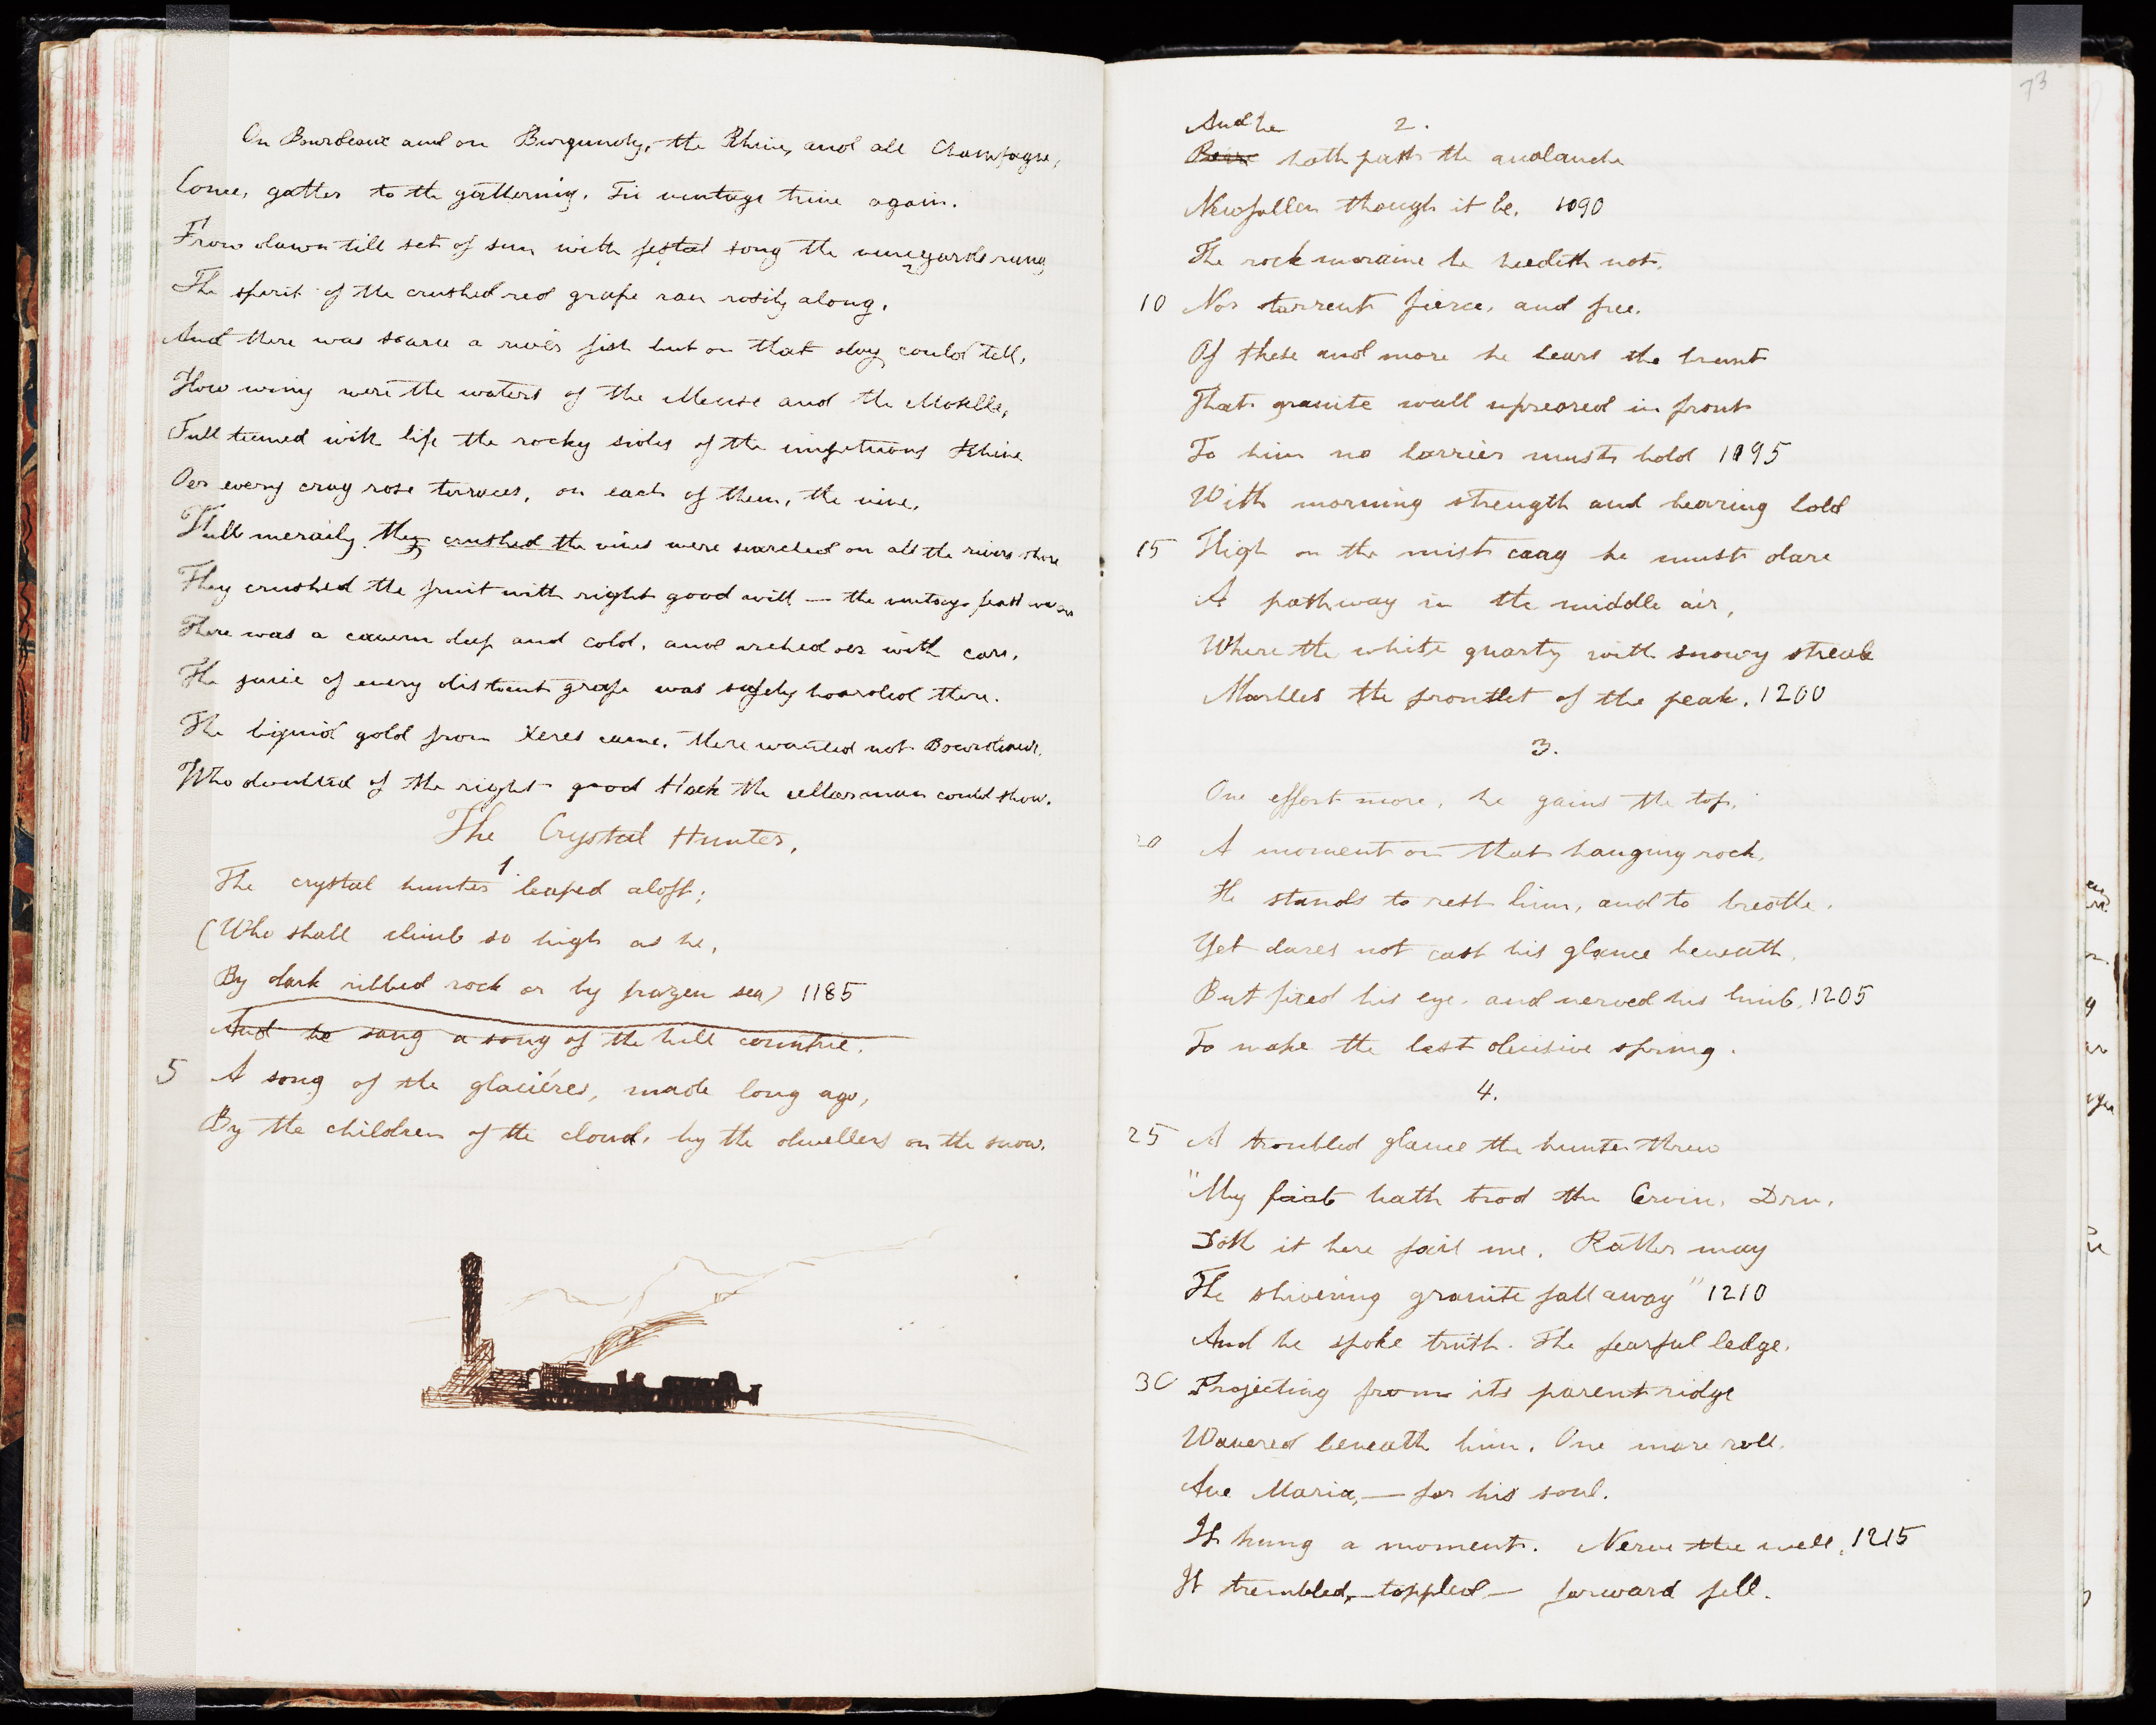 On Bourdeaux and on Burgundy, the Rhine, and all Champagne,
Come, gather to the gathering. Tis vintage time again.
From dawn till set of sun with festal song the vineyards rung
The spirit of the crushed red grape ran rosily along.
And there was scarce a river fish but on that day could tell,
How winy were the waters of the Meuse and the Moselle,
Full teemed with life the rocky sides of the impetuous Rhine
Oer every crag rose terraces, on each of them, the vine.
Full merrily they crushed the vines were searched on all the rivers shore
They crushed the fruit with right good will — the vintage feast was
There was a cavern deep and cold, and arched oer with care,
The juice of every distant grape was safely hoarded there.
The liquid gold from Xeres came, there wanted not Bourdeaux.
Who doubted of the right good Hock the cellarman could show.
The Crystal Hunter.
1
The crystal hunter leaped aloft;
(Who shall climb so high as he,
By dark ribbed rock or by frozen sea) 1185
And he sang a song of the hill countrie.
5 A song of the glaciéres, made long ago,
By the children of the cloud, by the dwellers on the snow.
73
And he 2.
hath past the avalanche
Newfallen though it be. 1090
The rock moraine he heedeth not,
10 Nor torrent fierce, and free.
Of these and more he bears the brunt
That granite wall upreared in front
To him no barrier must hold 1195
With morning strength and bearing bold
15 High on the mist crag he must dare
A pathway in the middle air,
Where the white quartz with snowy streak
Marbles the frontlet of the peak. 1200
3.
One effort more, he gains the top,
20 A moment on that hanging rock,
He stands to rest him, and to breathe.
Yet dares not cast his glance beneath,
But fixed his eye, and nerved his limb, 1205
To make the last decisive spring.
4.
25 A troubled glance the hunter threw
"My foot hath trod the Dru,
Doth it here fail me. Rather may
The shivering granite fall away" 1210
And he spoke truth. The fearful ledge,
30 Projecting from its parent ridge
Wavered beneath him. One more roll,
Ave Maria, — for his soul.
It hung a moment. Nerve thee well, 1215
It trembled, — toppled — forward fell.